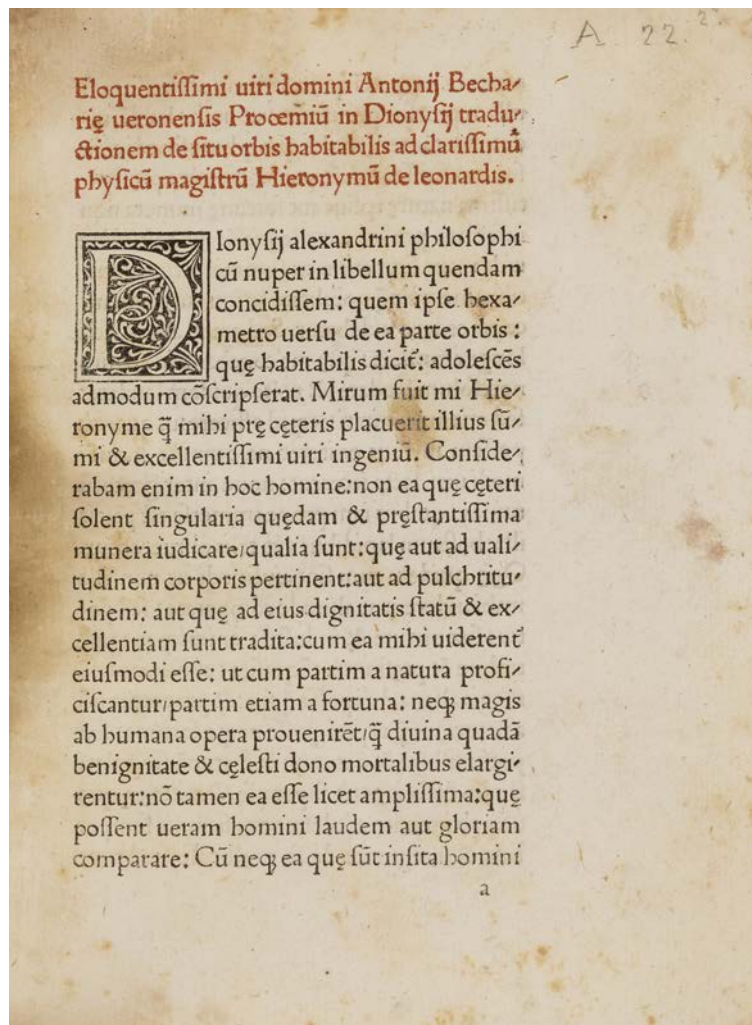 A. 22.
Eloquentiſſimi uiri domini Antonij Becha⸗
rię ueronenſis Procemiū in Dionyſij tradu⸗
ctionem de ſitu orbis habitabilis ad clariſſimū
phyſicū magiſtrū Hieronymū de leonardis.
DIonyſij alexandrini philoſophi
cū nuper in libellum quendam
concidiſſem: quem ipſe hexa⸗
metro uerſu de ea parte orbis :
quę habitabilis dicit̃: adoleſcēs
admodum cōſcripſerat. Mirum fuit mi Hie⸗
ronyme q̃ mihi prę cęteris placuerit illius ſū⸗
mi & excellentiſſimi uiri ingeniū. Conſide⸗
rabam enim in hoc homine: non ea quę cęteri
ſolent ſingularia quędam & pręſtantiſſima
munera iudicare/qualia ſunt: quę aut ad uali⸗
tudinem corporis pertinent: aut ad pulchritu⸗
dinem: aut quę ad eius dignitatis ſtatū & ex⸗
cellentiam ſunt tradita: cum ea mihi uiderent̃
eiuſmodi eſſe: ut cum partim a natura profi⸗
ciſcantur/partim etiam a fortuna: neqꝫ magis
ab humana opera prouenirēt/q̃ diuina quadā
benignitate & cęleſti dono mortalibus elargi⸗
rentur: nō tamen ea eſſe licet ampliſſima: quę
poſſent ueram homini laudem aut gloriam
comparare: Cū neqꝫ ea quę ſūt inſita homini
a